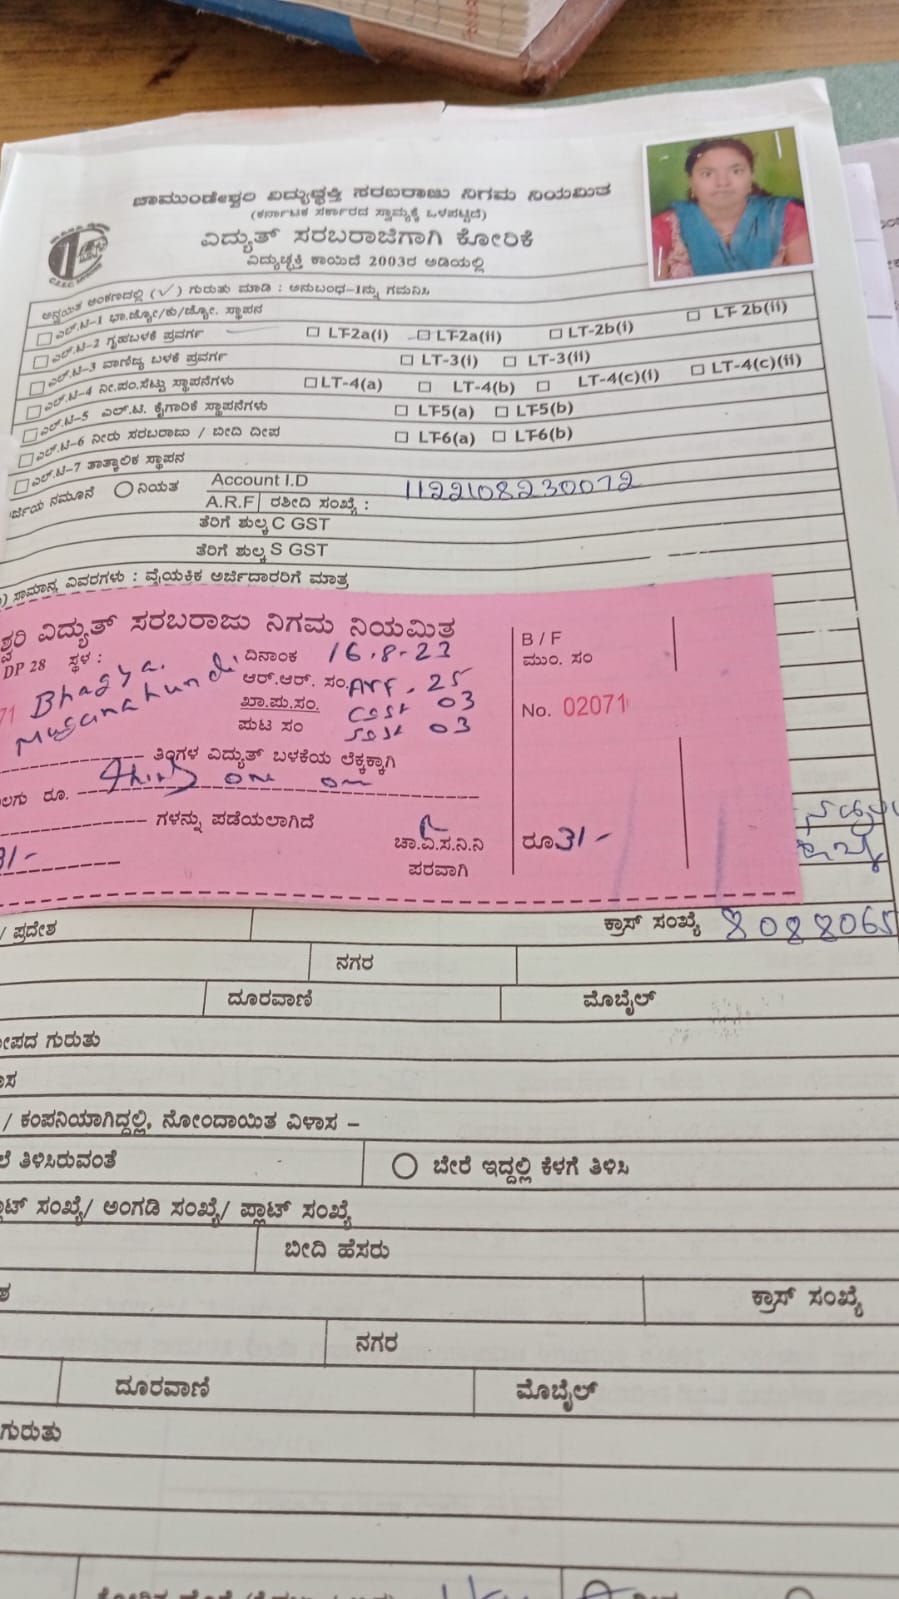 ಚಾಮುಂಡೇಶ್ವರಿ ವಿದ್ಯುಚ್ಛಕ್ತಿ ಸರಬರಾಜು ನಿಗಮ ನಿಯಮಿತ
(ಕರ್ನಾಟಕ ಸರ್ಕಾರದ ಸ್ವಾಮ್ಯಕ್ಕೆ ಒಳಪಟ್ಟಿದೆ)
ವಿದ್ಯುತ್ ಸರಬರಾಜಿಗಾಗಿ ಕೋರಿಕೆ
ವಿದ್ಯುಚ್ಛಕ್ತಿ ಕಾಯಿದೆ 2003ರ ಅಡಿಯಲ್ಲಿ
ಅನ್ವಯಿತ ಅಂಕಣದಲ್ಲಿ (✓) ಗುರುತು ಮಾಡಿ : ಅನುಬಂಧ-1ನ್ನು ಗಮನಿಸಿ
ಎಲ್.ಟಿ-1 ಭಾ.ಜ್ಯೋ/ಕು/ಜ್ಯೋ. ಸ್ಥಾಪನ
ಎಲ್.ಟಿ-2 ಗೃಹಬಳಕೆ ಪ್ರವರ್ಗ LT-2a(i) LT-2a(ii) LT-2b(i) LT-2b(ii)
ಎಲ್.ಟಿ-3 ವಾಣಿಜ್ಯ ಬಳಕೆ ಪ್ರವರ್ಗ LT-3(i) LT-3(ii)
ಎಲ್.ಟಿ-4 ನೀ.ಪಂ.ಸೆಟ್ಟು ಸ್ಥಾಪನೆಗಳು LT-4(a) LT-4(b) LT-4(c)(i) LT-4(c)(ii)
ಎಲ್.ಟಿ-5 ಎಲ್.ಟಿ. ಕೈಗಾರಿಕೆ ಸ್ಥಾಪನೆಗಳು LT-5(a) LT-5(b)
ಎಲ್.ಟಿ-6 ನೀರು ಸರಬರಾಜು / ಬೀದಿ ದೀಪ LT-6(a) LT-6(b)
ಎಲ್.ಟಿ-7 ತಾತ್ಕಾಲಿಕ ಸ್ಥಾಪನ
ನಮೂನೆ ನಿಯತ Account I.D 1122108230072
A.R.F ರಶೀದಿ ಸಂಖ್ಯೆ :
ತೆರಿಗೆ ಶುಲ್ಕ C GST
ತೆರಿಗೆ ಶುಲ್ಕ S GST
ಸಾಮಾನ್ಯ ವಿವರಗಳು : ವೈಯಕ್ತಿಕ ಅರ್ಜಿದಾರರಿಗೆ ಮಾತ್ರ
ವಿದ್ಯುತ್ ಸರಬರಾಜು ನಿಗಮ ನಿಯಮಿತ
DP 28 ಸ್ಥಳ : ದಿನಾಂಕ 16.8-23
B / F
ಮುಂ. ಸಂ
Bhagya.
ಆರ್.ಆರ್. ಸಂ. Arf - 25
ಖಾ.ಪು.ಸಂ. Cgst 03
No. 02071
ಪುಟ ಸಂ Sgst 03
ತಿಂಗಳ ವಿದ್ಯುತ್ ಬಳಕೆಯ ಲೆಕ್ಕಕ್ಕಾಗಿ
ರೂ. thirty one
ಗಳನ್ನು ಪಡೆಯಲಾಗಿದೆ
ಚಾ.ವಿ.ಸ.ನಿ.ನಿ
ಪರವಾಗಿ
ರೂ 31/-
ಪ್ರದೇಶ ಕ್ರಾಸ್ ಸಂಖ್ಯೆ 8088065
ನಗರ
ದೂರವಾಣಿ ಮೊಬೈಲ್
ಗುರುತು
/ ಕಂಪನಿಯಾಗಿದ್ದಲ್ಲಿ, ನೋಂದಾಯಿತ ವಿಳಾಸ –
ತಿಳಿಸಿರುವಂತೆ ಬೇರೆ ಇದ್ದಲ್ಲಿ ಕೆಳಗೆ ತಿಳಿಸಿ
ಸಂಖ್ಯೆ/ ಅಂಗಡಿ ಸಂಖ್ಯೆ/ ಪ್ಲಾಟ್ ಸಂಖ್ಯೆ
ಬೀದಿ ಹೆಸರು
ಕ್ರಾಸ್ ಸಂಖ್ಯೆ
ನಗರ
ದೂರವಾಣಿ ಮೊಬೈಲ್
ಗುರುತು